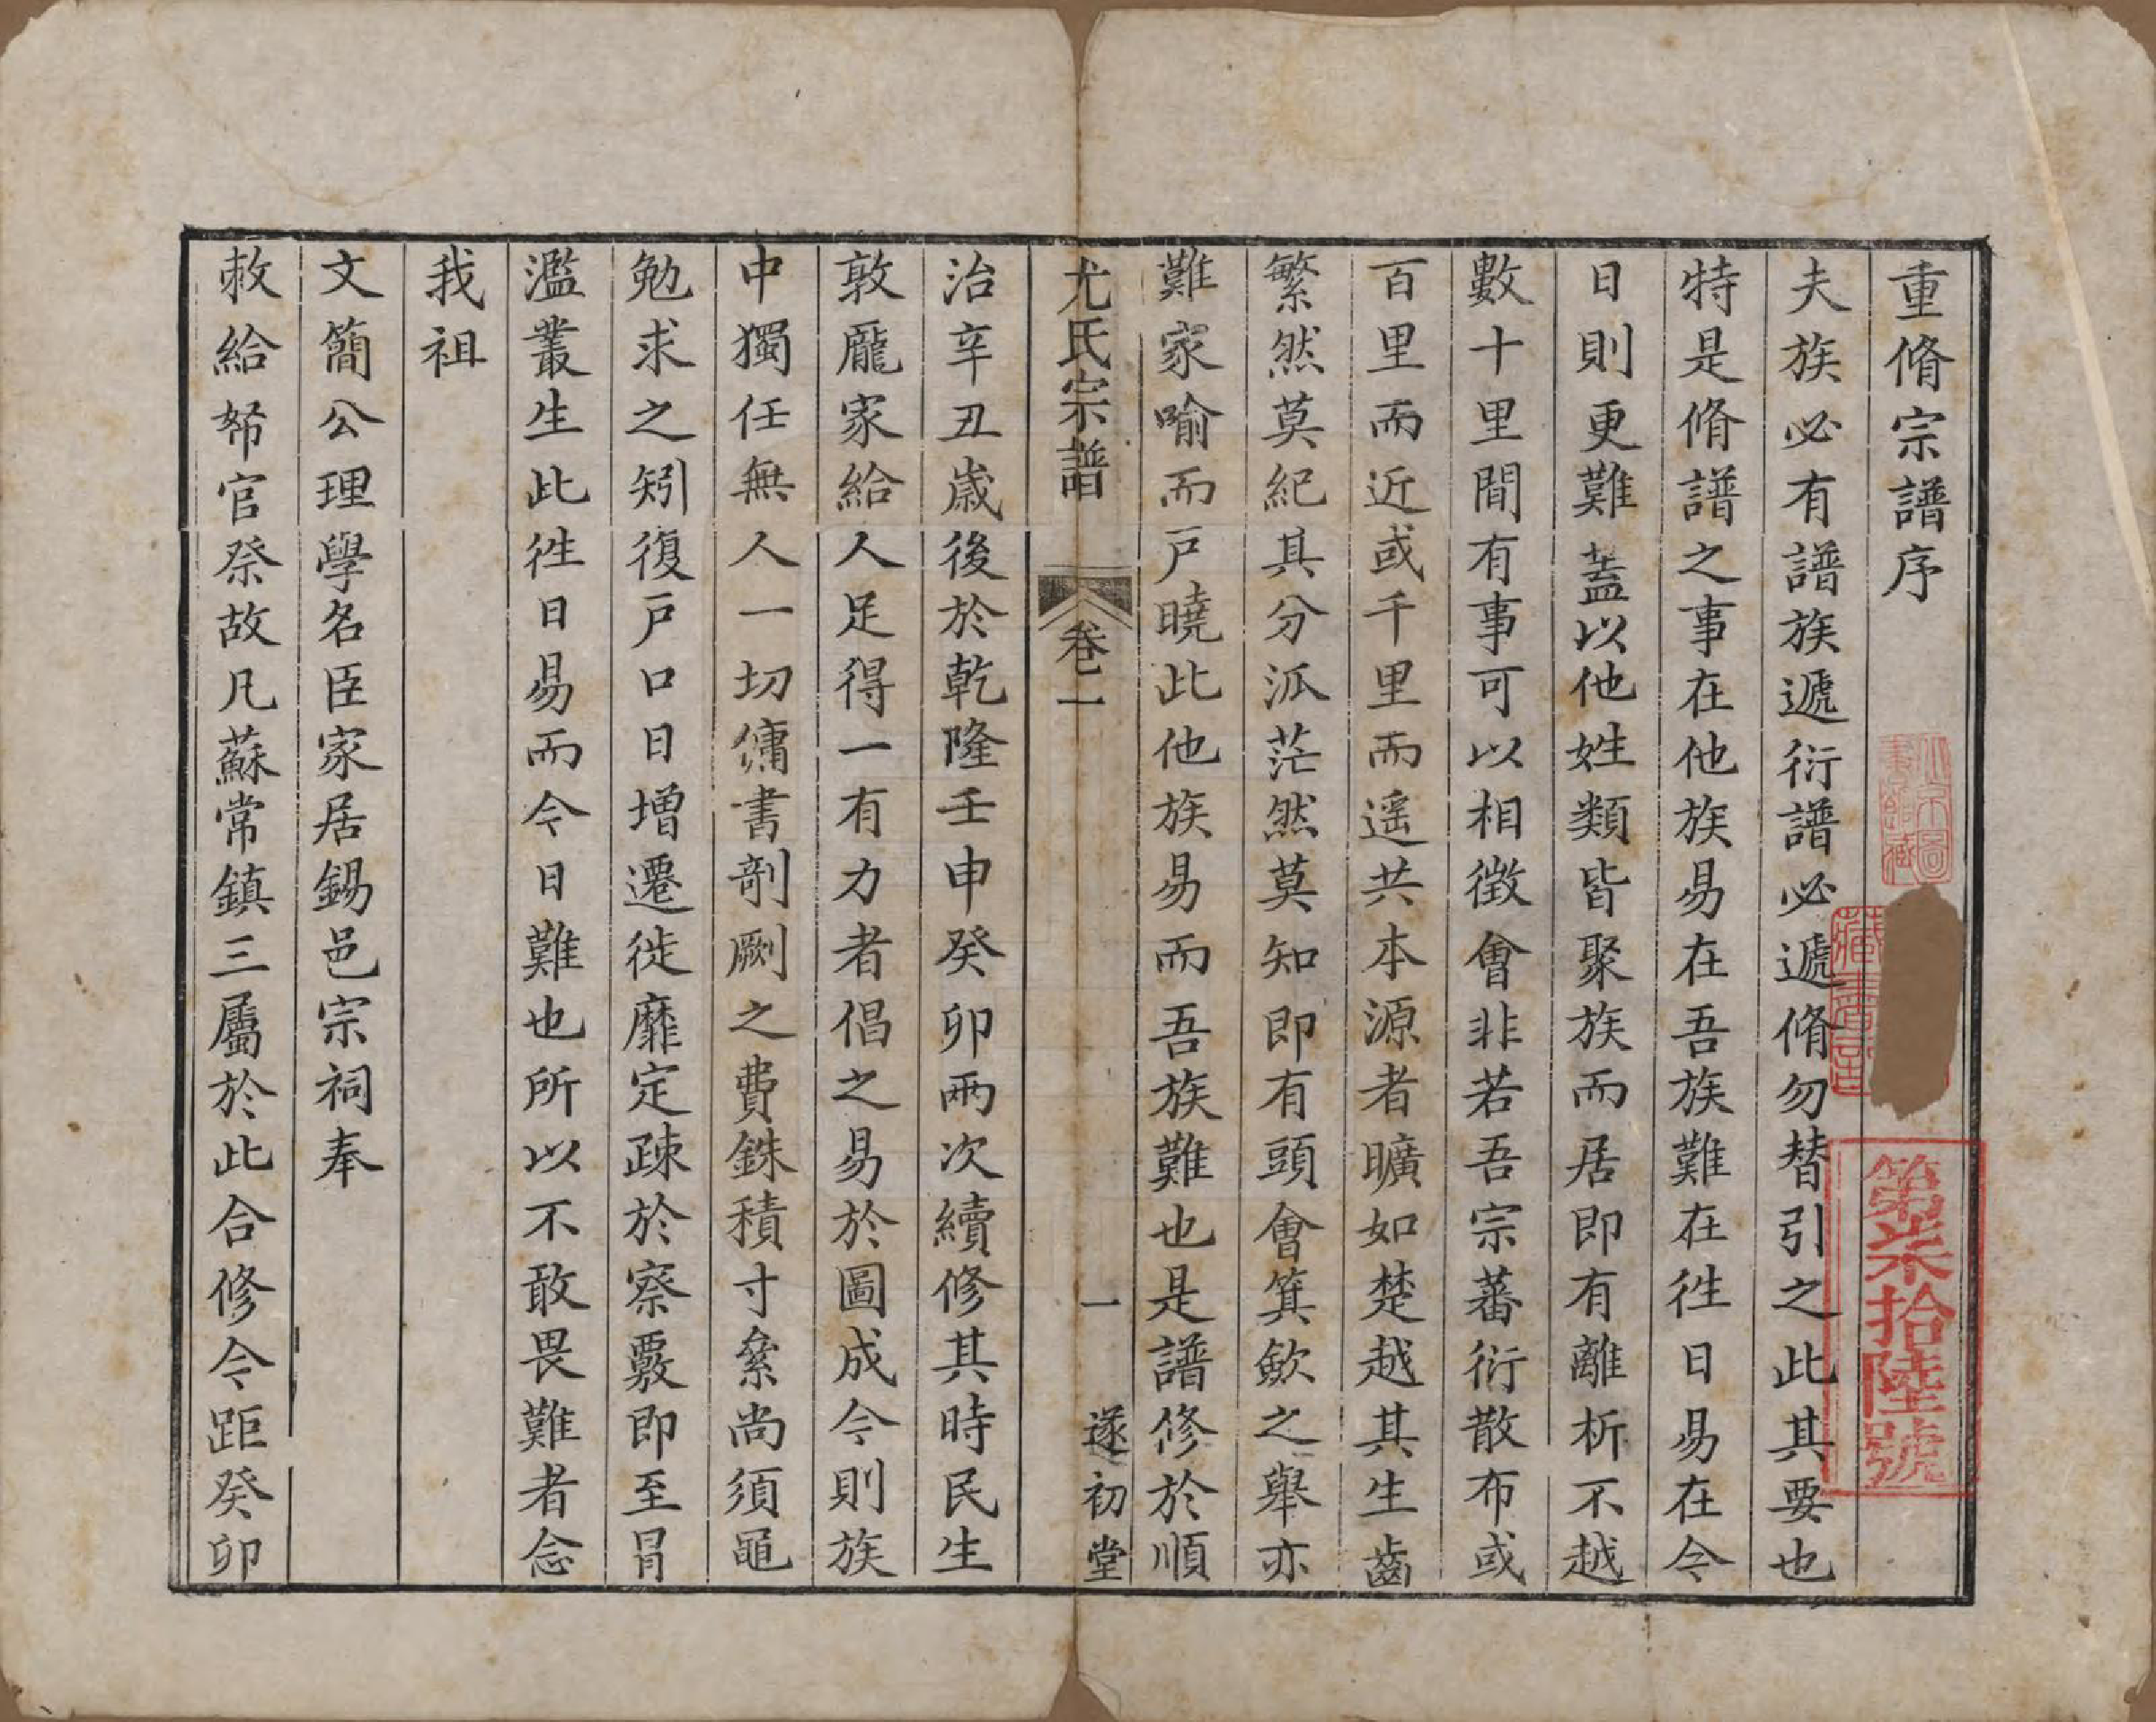 重脩宗譜序
夫族必有譜族遞衍譜必遞脩勿替引之此其要也
特是脩譜之事在他族易在吾族難在徃日易在今
日則更難蓋以他姓類皆聚族而居即有離析不越
數十里間有事可以相徵會非若吾宗蕃衍散布或
百里而近或千里而遥共本源者曠如楚越其生齒
繁然莫紀其分派茫然莫知即有頭會箕歛之舉亦
難家喻而戸曉此他族易而吾族難也是譜修於順
尤氏宗譜 卷一 一 遂初堂
治辛丑歲後於乾隆壬申癸卯兩次續修其時民生
敦龐家給人足得一有力者倡之易於圖成今則族
中獨任無人一切傭書剞劂之費銖積寸絫尚須黽
勉求之矧復戸口日增遷徙靡定疎於察覈即至冐
濫叢生此徃日易而今日難也所以不敢畏難者念
我祖
文簡公理學名臣家居錫邑宗祠奉
敕給帑官祭故凡蘇常鎮三屬於此合修今距癸卯
第柒拾陸號